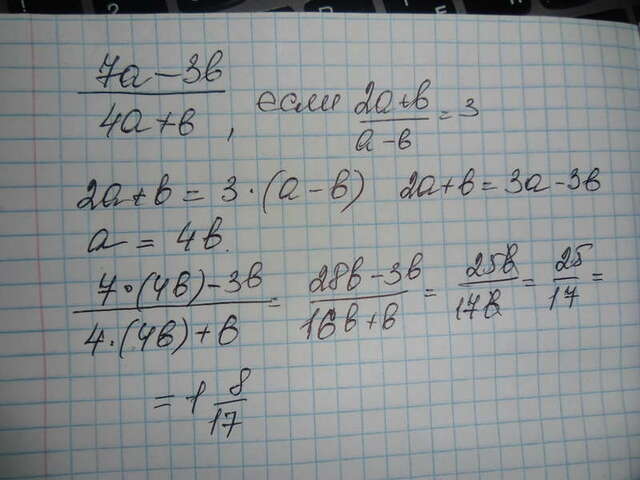 (7а-3в)/(4а+в), если (2а+в)/(а-в) = 3
2а+в = 3·(а-в) 2а+в = 3а-3в
а = 4в.
(7·(4в)-3в)/(4·(4в)+в) = (28в-3в)/(16в+в) = 25в/17в = 25/17 =
= 1 8/17